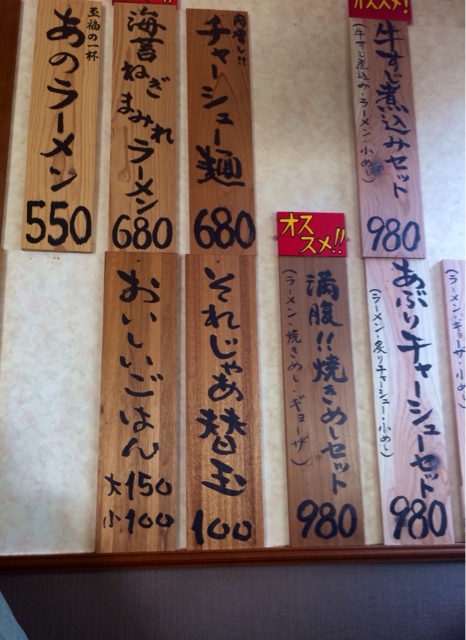 オススメ!
牛すじ煮込みセット
(牛すじ煮込み・ラーメン・小めし)
980
肉増し!!
チャーシュー麺
680
海苔ねぎまみれラーメン
680
至福の一杯
あのラーメン
550
(ラーメン・ギョーザ・小めし)
あぶりチャーシューセット
(ラーメン・炙りチャーシュー・小めし)
980
オススメ!!
満腹!!焼きめしセット
(ラーメン・焼きめし・ギョーザ)
980
それじゃあ替玉
100
おいしいごはん
大150
小100